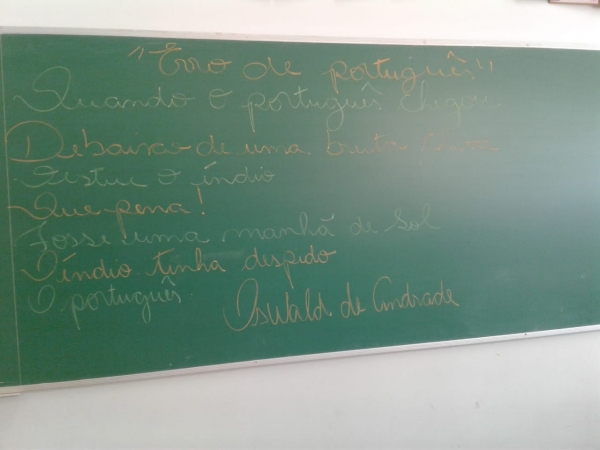 "Erro de português"
Quando o português chegou
Debaixo de uma bruta chuva
Vestiu o índio
Que pena!
Fosse uma manhã de Sol
O índio tinha despido
O português.
Oswald de Andrade